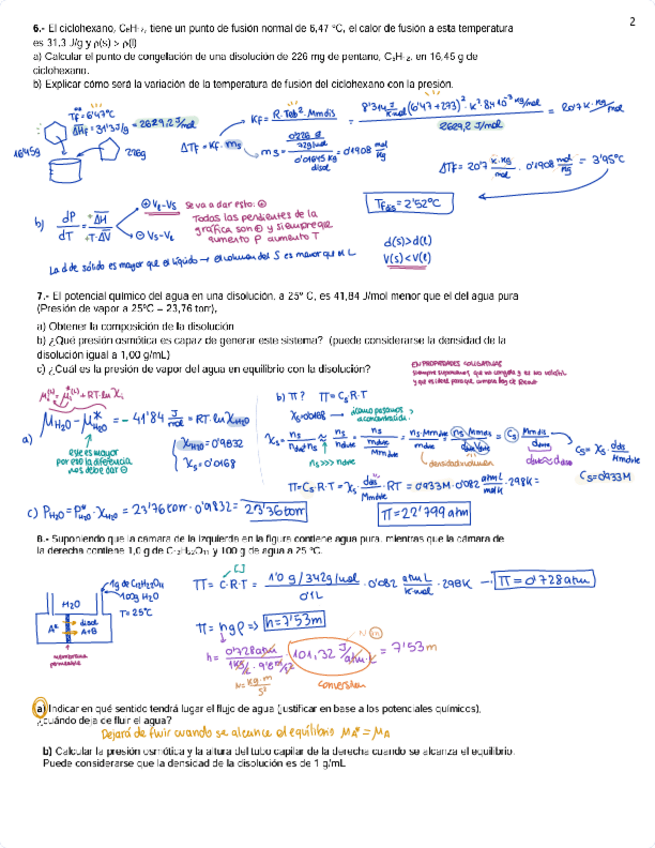 2
6.- El ciclohexano, C₆H₁₂, tiene un punto de fusión normal de 6,47 ºC, el calor de fusión a esta temperatura
es 31,3 J/g y ρ(s) > ρ(l)
a) Calcular el punto de congelación de una disolución de 226 mg de pentano, C₅H₁₂, en 16,45 g de
ciclohexano.
b) Explicar cómo será la variación de la temperatura de fusión del ciclohexano con la presión.
Tf = 6'47ºC
ΔHf = 31'3 J/g = 2629,2 J/mol
1645g
226g
ΔTf = Kf · ms
Kf = R·Teb²·Mmdis = 8'314 (6'47+273)² · 84·10⁻³ kg/mol / 2629,2 J/mol = 20'7 K·kg/mol
ms = 0'226 g / 72g/mol / 0'01645 kg disol = 0'1908 mol/kg
ΔTf = 20'7 K·kg/mol · 0'1908 mol/kg = 3'95ºC
Tfdis = 2'52ºC
b) dP/dT = +ΔH / +T·ΔV
⊕ Vl-Vs se va a dar esto: ⊕
⊖ Vs-Vl
Todas las pendientes de la
gráfica son ⊕ y siempre que
aumento P aumento T
d(s)>d(l)
V(s)<V(l)
La d de sólido es mayor que el líquido → el volumen del S es mayor que el L
7.- El potencial químico del agua en una disolución, a 25º C, es 41,84 J/mol menor que el del agua pura
(Presión de vapor a 25ºC = 23,76 torr),
a) Obtener la composición de la disolución
b) ¿Qué presión osmótica es capaz de generar este sistema? (puede considerarse la densidad de la
disolución igual a 1,00 g/mL)
c) ¿Cuál es la presión de vapor del agua en equilibrio con la disolución?
EN PROPIEDADES COLIGATIVAS
a)
μH₂O - μ*H₂O = -41'84 J/mol = RT·ln XH₂O
este es mayor
por eso la diferencia
nos debe dar ⊖
XH₂O = 0'9832
Xs = 0'0168
b) π? π = Cs·R·T
Xs = 0'0168 → ¿cómo pasamos
a concentración?
ns >>> ndve
densidad·volumen
Cs = Xs · dds / Mmdve
Cs = 0'933M
π = Cs·R·T = Xs · dds / Mmdve · RT = 0'933M · 0'082 atm·L/mol·K · 298K =
π = 22'799 atm
c) PH₂O = P*H₂O · XH₂O = 23'76 torr · 0'9832 = 23'36 torr
8.- Suponiendo que la cámara de la izquierda en la figura contiene agua pura, mientras que la cámara de
la derecha contiene 1,0 g de C₁₂H₂₂O₁₁ y 100 g de agua a 25 ºC.
1g de C₁₂H₂₂O₁₁
100g H₂O
T = 25ºC
H₂O
A*
disol
A+B
membrana
permeable
π = C·R·T = 1'0 g / 342g/mol / 0'1L · 0'082 atm·L/K·mol · 298K → π = 0'728 atm
π = hgρ ⇒ h = 7'53m
h = 0'728 atm · 101,32 J/atm·L = 7'53 m
N = kg·m/s²
conversión
a) Indicar en qué sentido tendrá lugar el flujo de agua (justificar en base a los potenciales químicos),
¿cuándo deja de fluir el agua?
Dejará de fluir cuando se alcance el equilibrio μA* = μA
b) Calcular la presión osmótica y la altura del tubo capilar de la derecha cuando se alcanza el equilibrio.
Puede considerarse que la densidad de la disolución es de 1 g/mL